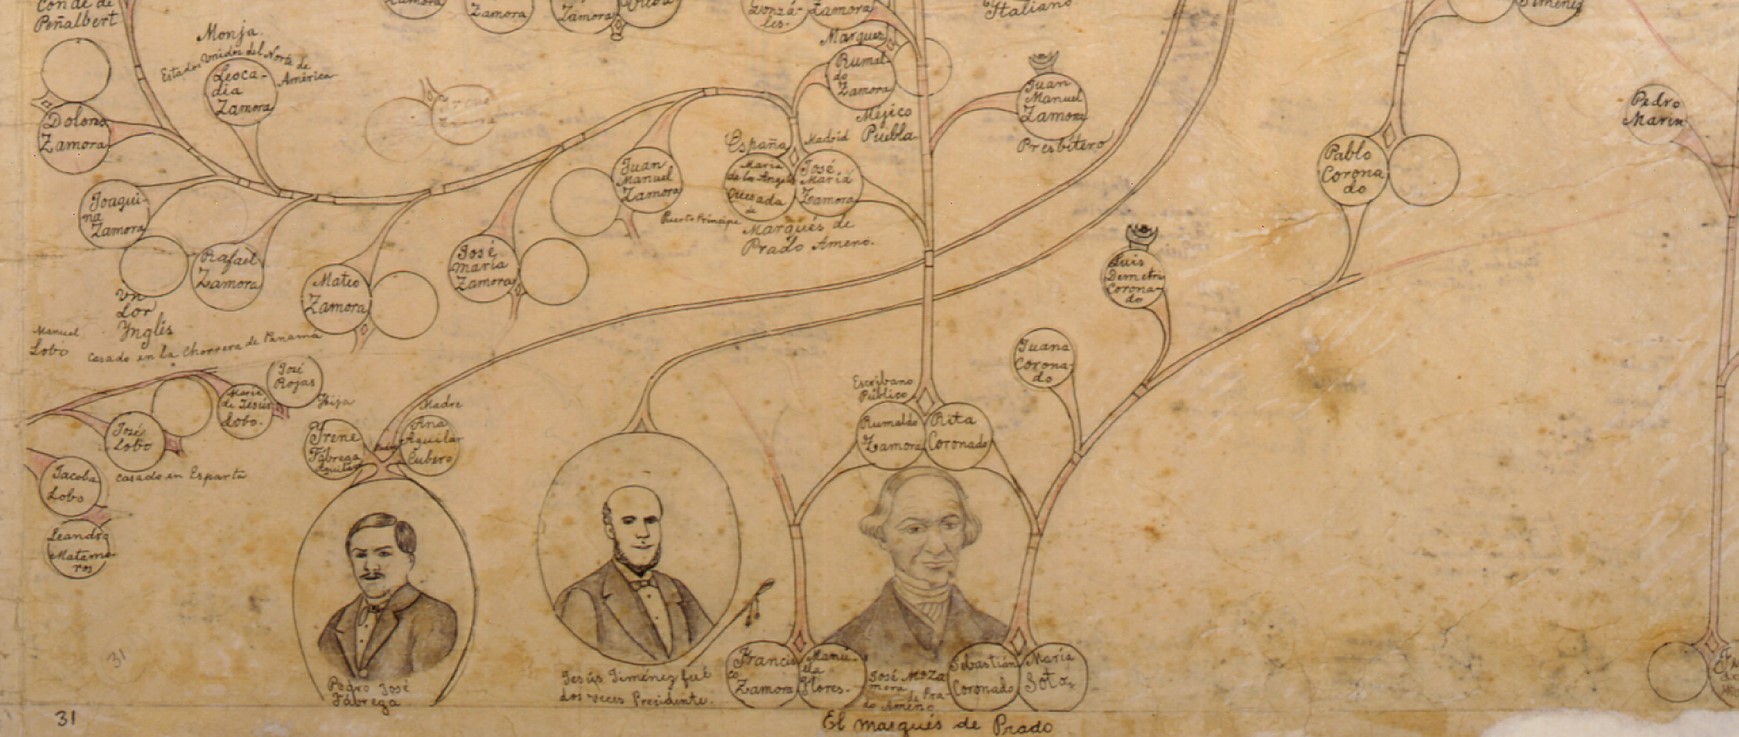 Conde de
Peñalbert
Zamora
Zamora
Zamora
Gonzá-
les.
Zamora
Italiano
Jiménez
Monja.
Estados Unidos del Norte de
América
Leoca-
dia
Zamora
Dolores
Zamora
Marques
Rumal-
do
Zamora
Méjico
Puebla
Juan
Manuel
Zamora
Presbítero
Pedro
Marin
Pablo
Corona
do
Joaqui-
na
Zamora
Rafael
Zamora
Un
Lor
Ynglés
Mateo
Zamora
José
maría
Zamora
Juan
Manuel
Zamora
Puerto Príncipe
España
Madrid
María
de los Angeles
Quesada
de
José
María
Zamora
Marqués de
Prado Ameno.
Luis
Demetri
Corona-
do
Juana
Corona-
do
Manuel
Lobo
Casado en la Chorrera de Panamá
José
Rojas
María
de Jesús
Lobo.
José
Lobo
casado en Esparta
Jacoba
Lobo
Leandro
Matamo-
ros
Hija
Irene
Fábrega
Aguilar
Madre
Ana
Aguilar
Cubero
Escribano
Público
Rumaldo
Zamora
Rita
Coronado
Pedro José
Fábrega
Jesús Jiménez fué
dos veces Presidente.
Francis
co
Zamora
Manu-
ela
Flores.
José Mª Za
mora
de Pra-
do Ameno
Sebastián
Coronado
María
Soto
31
31
El marqués de Prado